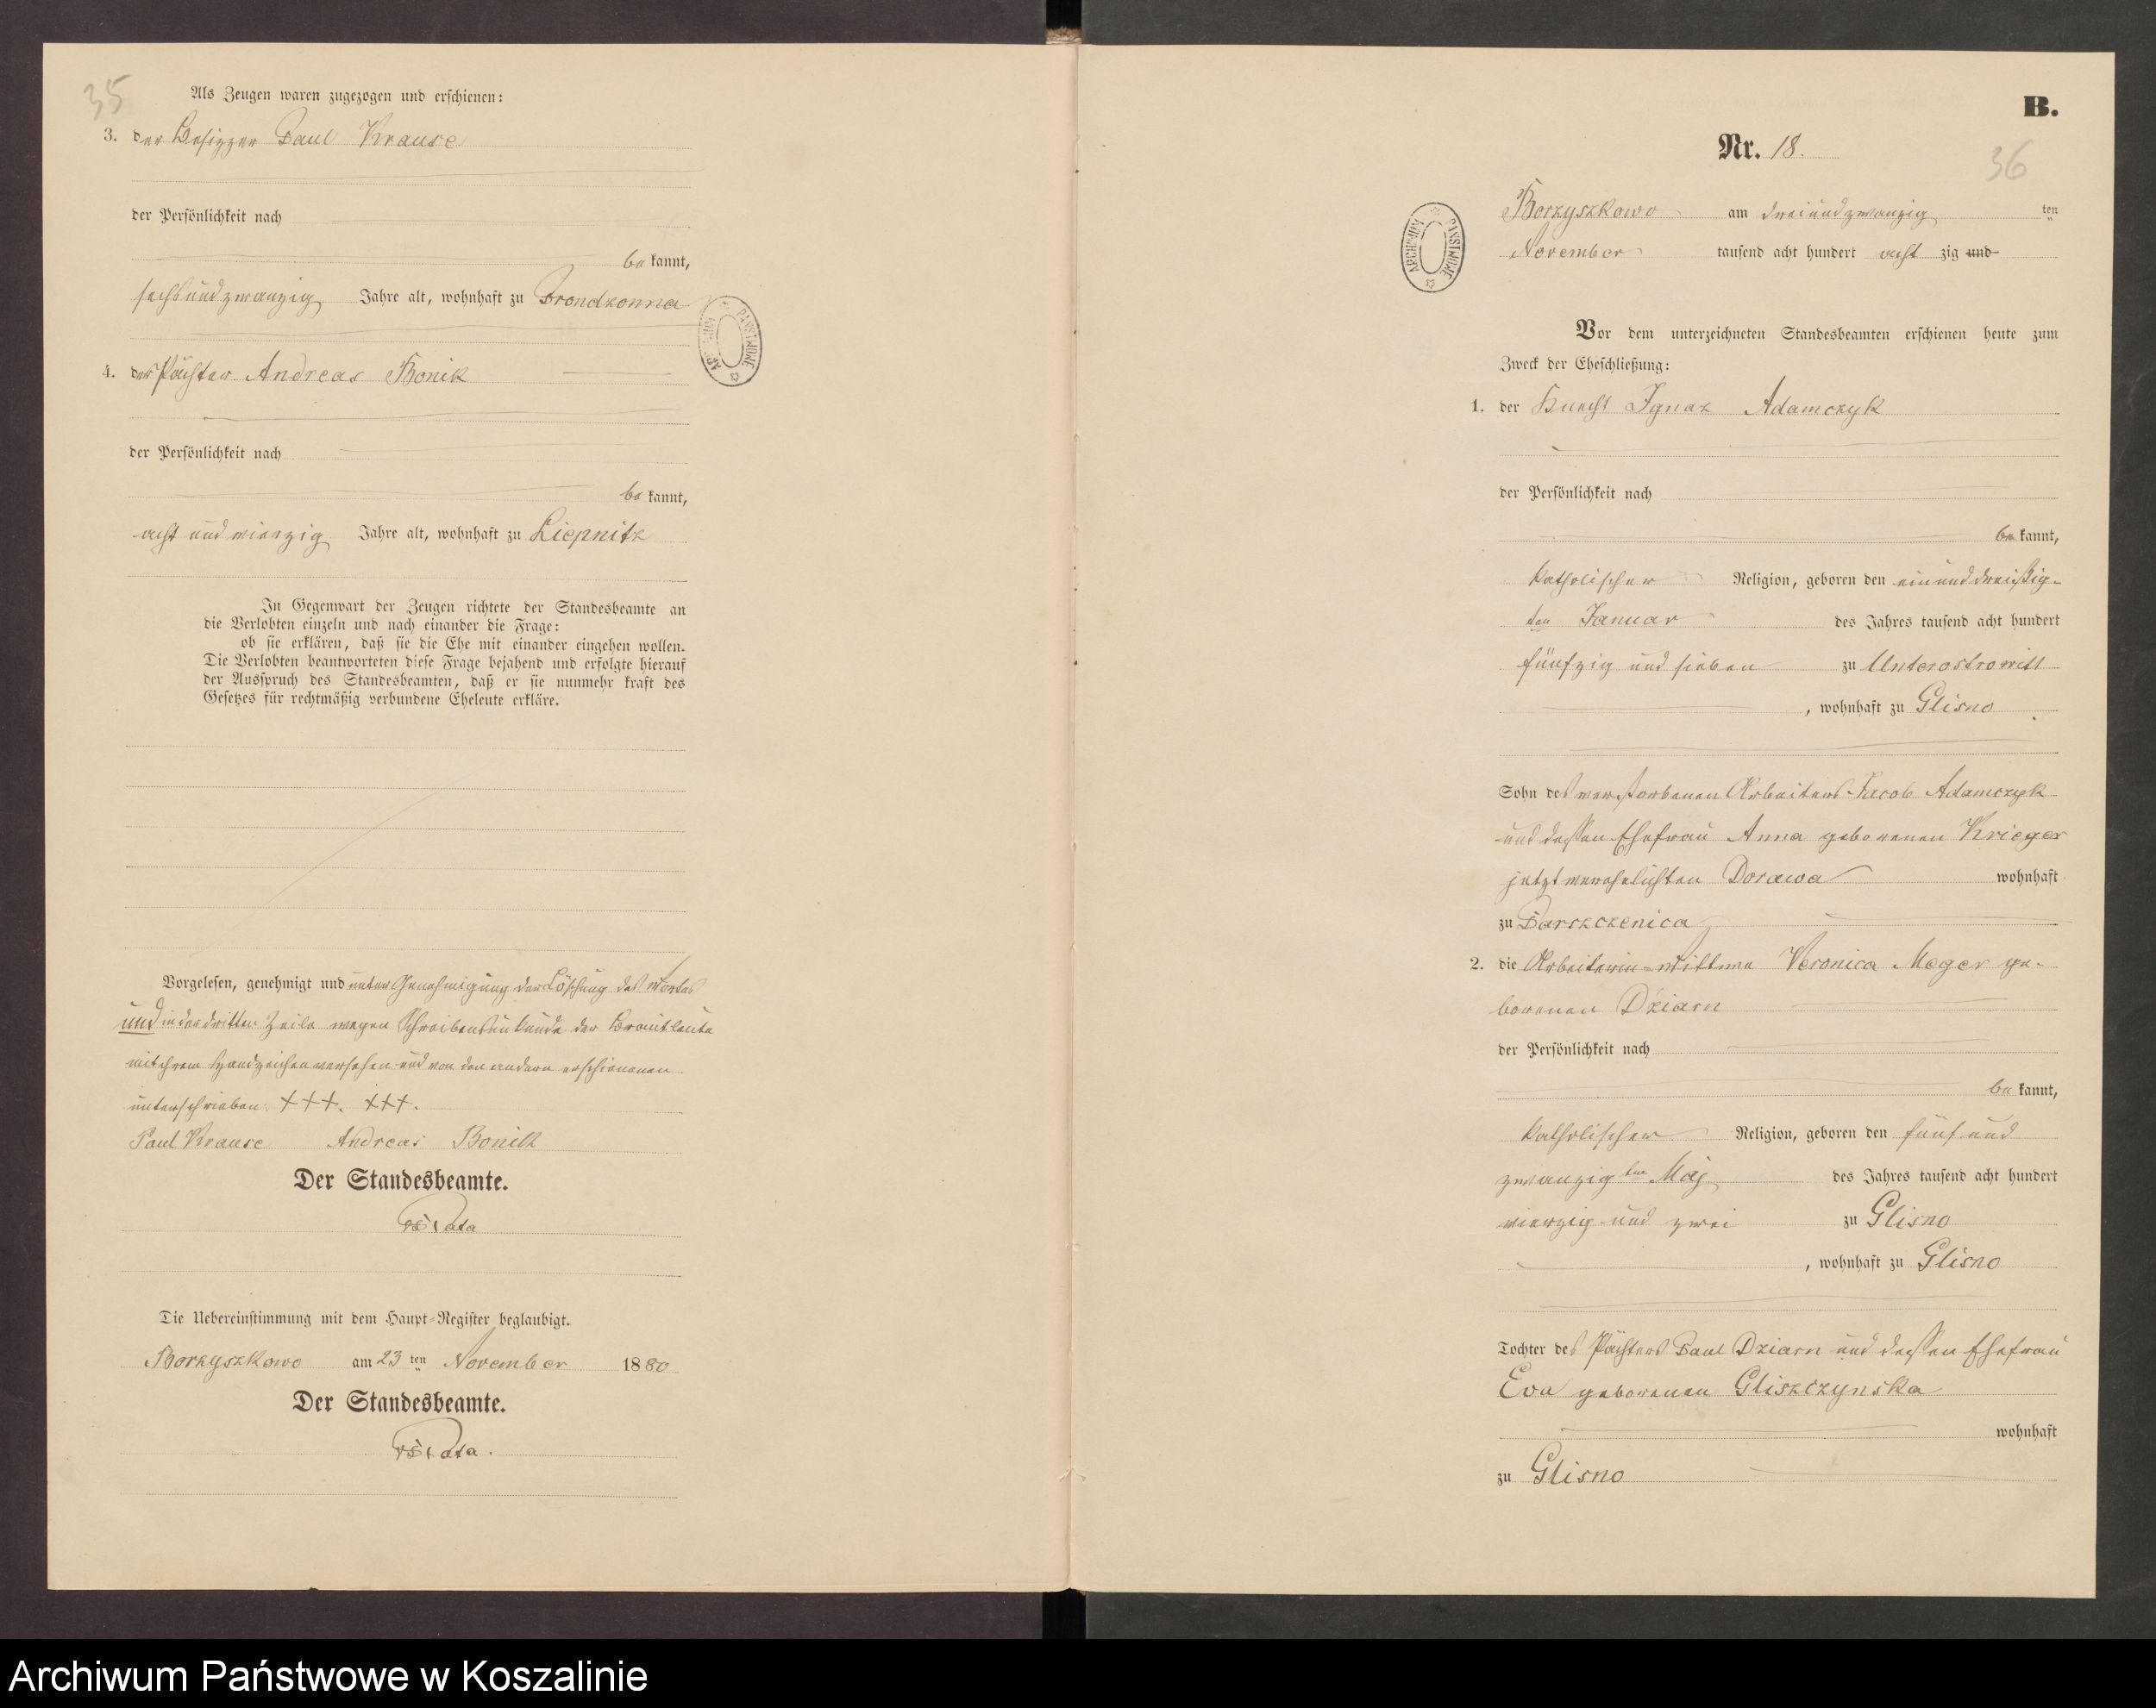 35
Als Zeugen waren zugezogen und erschienen:
3. der Besitzer Paul Krause
der Persönlichkeit nach
be kannt,
sechsundzwanzig Jahre alt, wohnhaft zu Prondzonna
4. der Pächter Andreas Bonik
der Persönlichkeit nach
be kannt,
acht und vierzig Jahre alt, wohnhaft zu Liepnitz
In Gegenwart der Zeugen richtete der Standesbeamte an
die Verlobten einzeln und nach einander die Frage:
ob sie erklären, daß sie die Ehe mit einander eingehen wollen.
Die Verlobten beantworteten diese Frage bejahend und erfolgte hierauf
der Ausspruch des Standesbeamten, daß er sie nunmehr kraft des
Gesetzes für rechtmäßig verbundene Eheleute erkläre.
Vorgelesen, genehmigt und unter Genehmigung der Löschung des Wortes
und in der dritten Zeile wegen Schreibensunkunde der Brautleute
mit ihrem Handzeichen versehen und von den andern erschienenen
unterschrieben. +++. +++.
Paul Krause Andreas Bonik
Der Standesbeamte.
Die Uebereinstimmung mit dem Haupt-Register beglaubigt.
Borzyszkowo am 23 ten November 1880
Der Standesbeamte.
ARCHIWUM PAŃSTWOWE
B.
Nr. 18.
36
Borzyszkowo am dreiundzwanzig ten
November tausend acht hundert acht zig und
ARCHIWUM PAŃSTWOWE
Vor dem unterzeichneten Standesbeamten erschienen heute zum
Zweck der Eheschließung:
1. der Knecht Ignaz Adamczyk
der Persönlichkeit nach
be kannt,
katholischer Religion, geboren den einunddreißig-
ten Januar des Jahres tausend acht hundert
fünfzig und sieben zu Unterostrowitt
, wohnhaft zu Glisno
Sohn des verstorbenen Arbeiters Jacob Adamczyk
und dessen Ehefrau Anna geborenen Krieger
jetzt verehelichten Dorawa wohnhaft
zu Parszczenica
2. die Arbeiterin-Wittwe Veronica Meger ge-
borenen Dziarn
der Persönlichkeit nach
be kannt,
katholischer Religion, geboren den fünf und
zwanzig ten Maj des Jahres tausend acht hundert
vierzig und zwei zu Glisno
, wohnhaft zu Glisno
Tochter des Pächters Paul Dziarn und dessen Ehefrau
Eva geborenen Gliszczynska
wohnhaft
zu Glisno
Archiwum Państwowe w Koszalinie